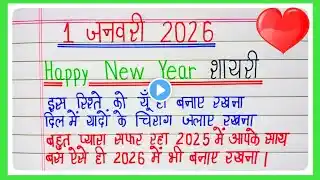 1 जनवरी 2026
Happy New Year शायरी
इस रिश्ते को यूँ ही बनाए रखना
दिल में यादों के चिराग जलाए रखना
बहुत प्यारा सफर रहा 2025 में आपके साथ
बस ऐसे ही 2026 में भी बनाए रखना |